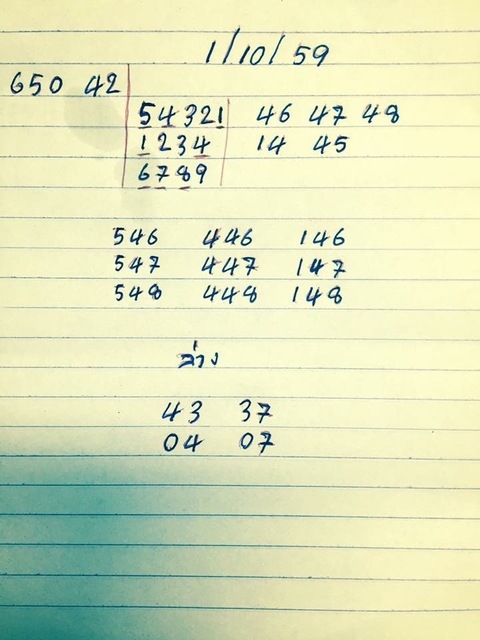 1/10/59
650 42
54321 46 47 48
1234 14 45
6789
546 446 146
547 447 147
548 448 148
ล่าง
43 37
04 07